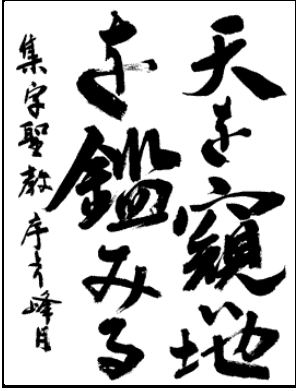 天を窺い地
を鑑みる
集字聖教序